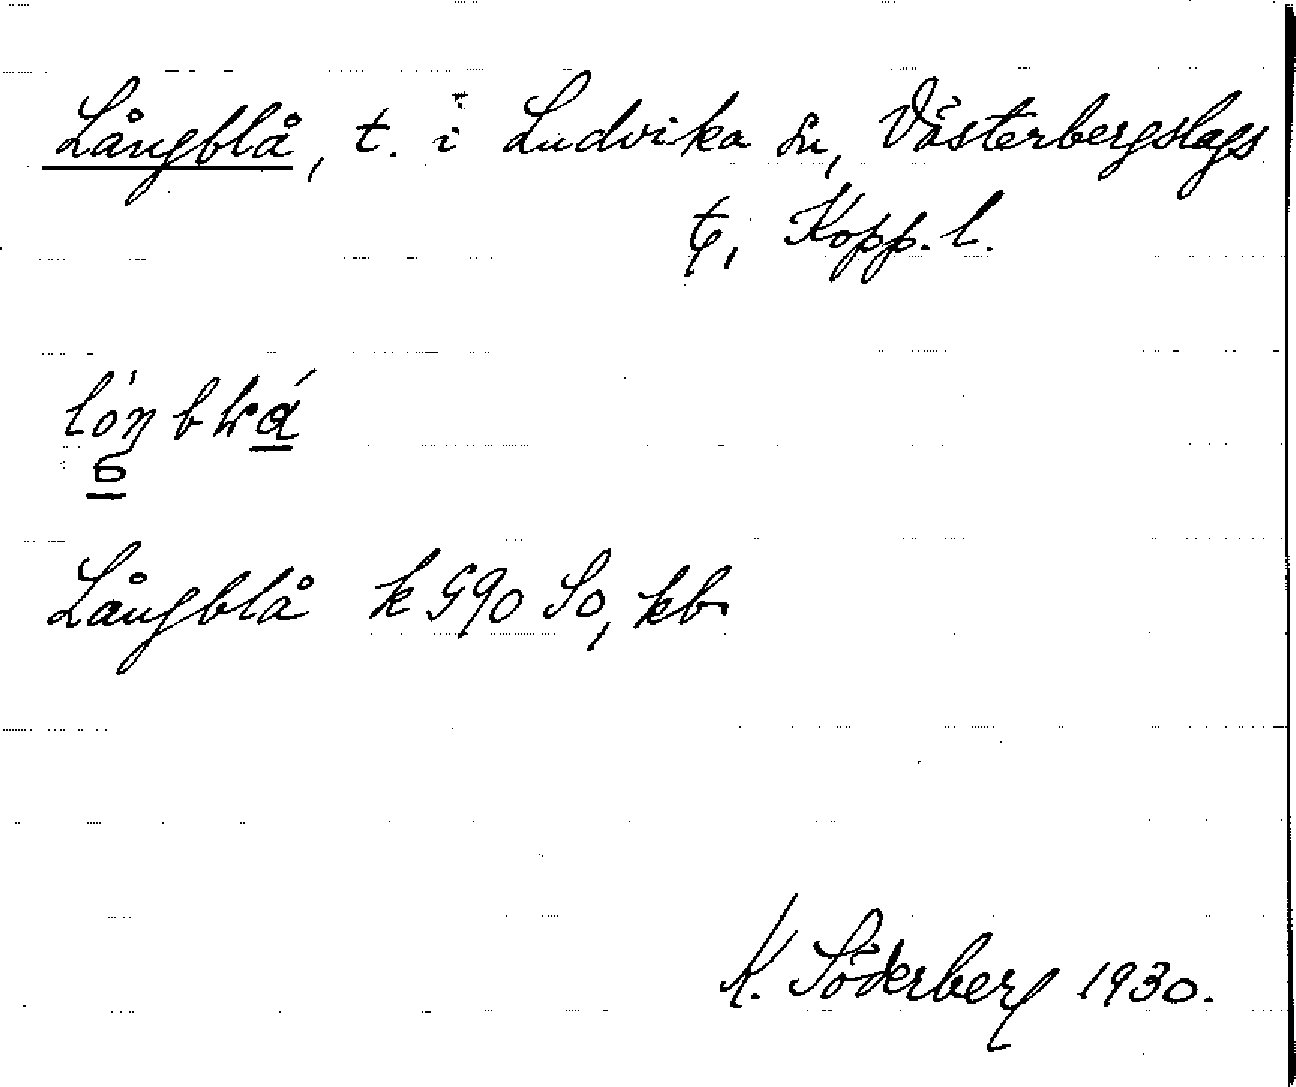 Långblå, t. i Ludvika sn, Västerbergslags
tg, Kopp. l.
Långblå k 590 So, kb.
K. Söderberg 1930.